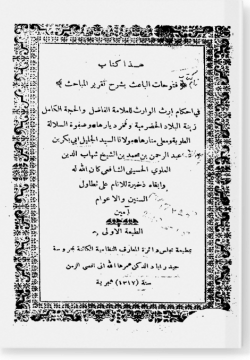 هذا كتاب
فتوحات الباعث بشرح تقرير المباحث
في احكام ارث الوارث للعلامة الفاضل والحجة الكامل
زينة البلاد الحضرمية وفخر ديارها وصفوة السلالة
العلوية ومنارها مولانا السيد الجليل ابي بكر بن
عبد الرحمن بن محمد بن الشيخ شهاب الدين
العلوي الحسيني الشافعي كان الله له
وابقاه ذخيرة للانام على تطاول
السنين والاعوام
آمين
الطبعة الاولى
بمطبعة مجلس دائرة المعارف النظامية الكائنة بمحروسة
حيدرآباد الدكن عمرها الله الى اقصى الزمن
سنة (١٣١٧) هجرية